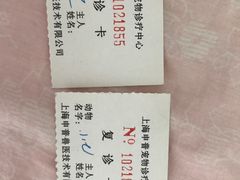 宠物诊疗中心
1021855
诊 卡
主人
姓名:
技术有限公司
上海申普宠物诊疗
№ 1021
复 诊
动物 主人
名字: 姓名
上海申普兽医技术有限